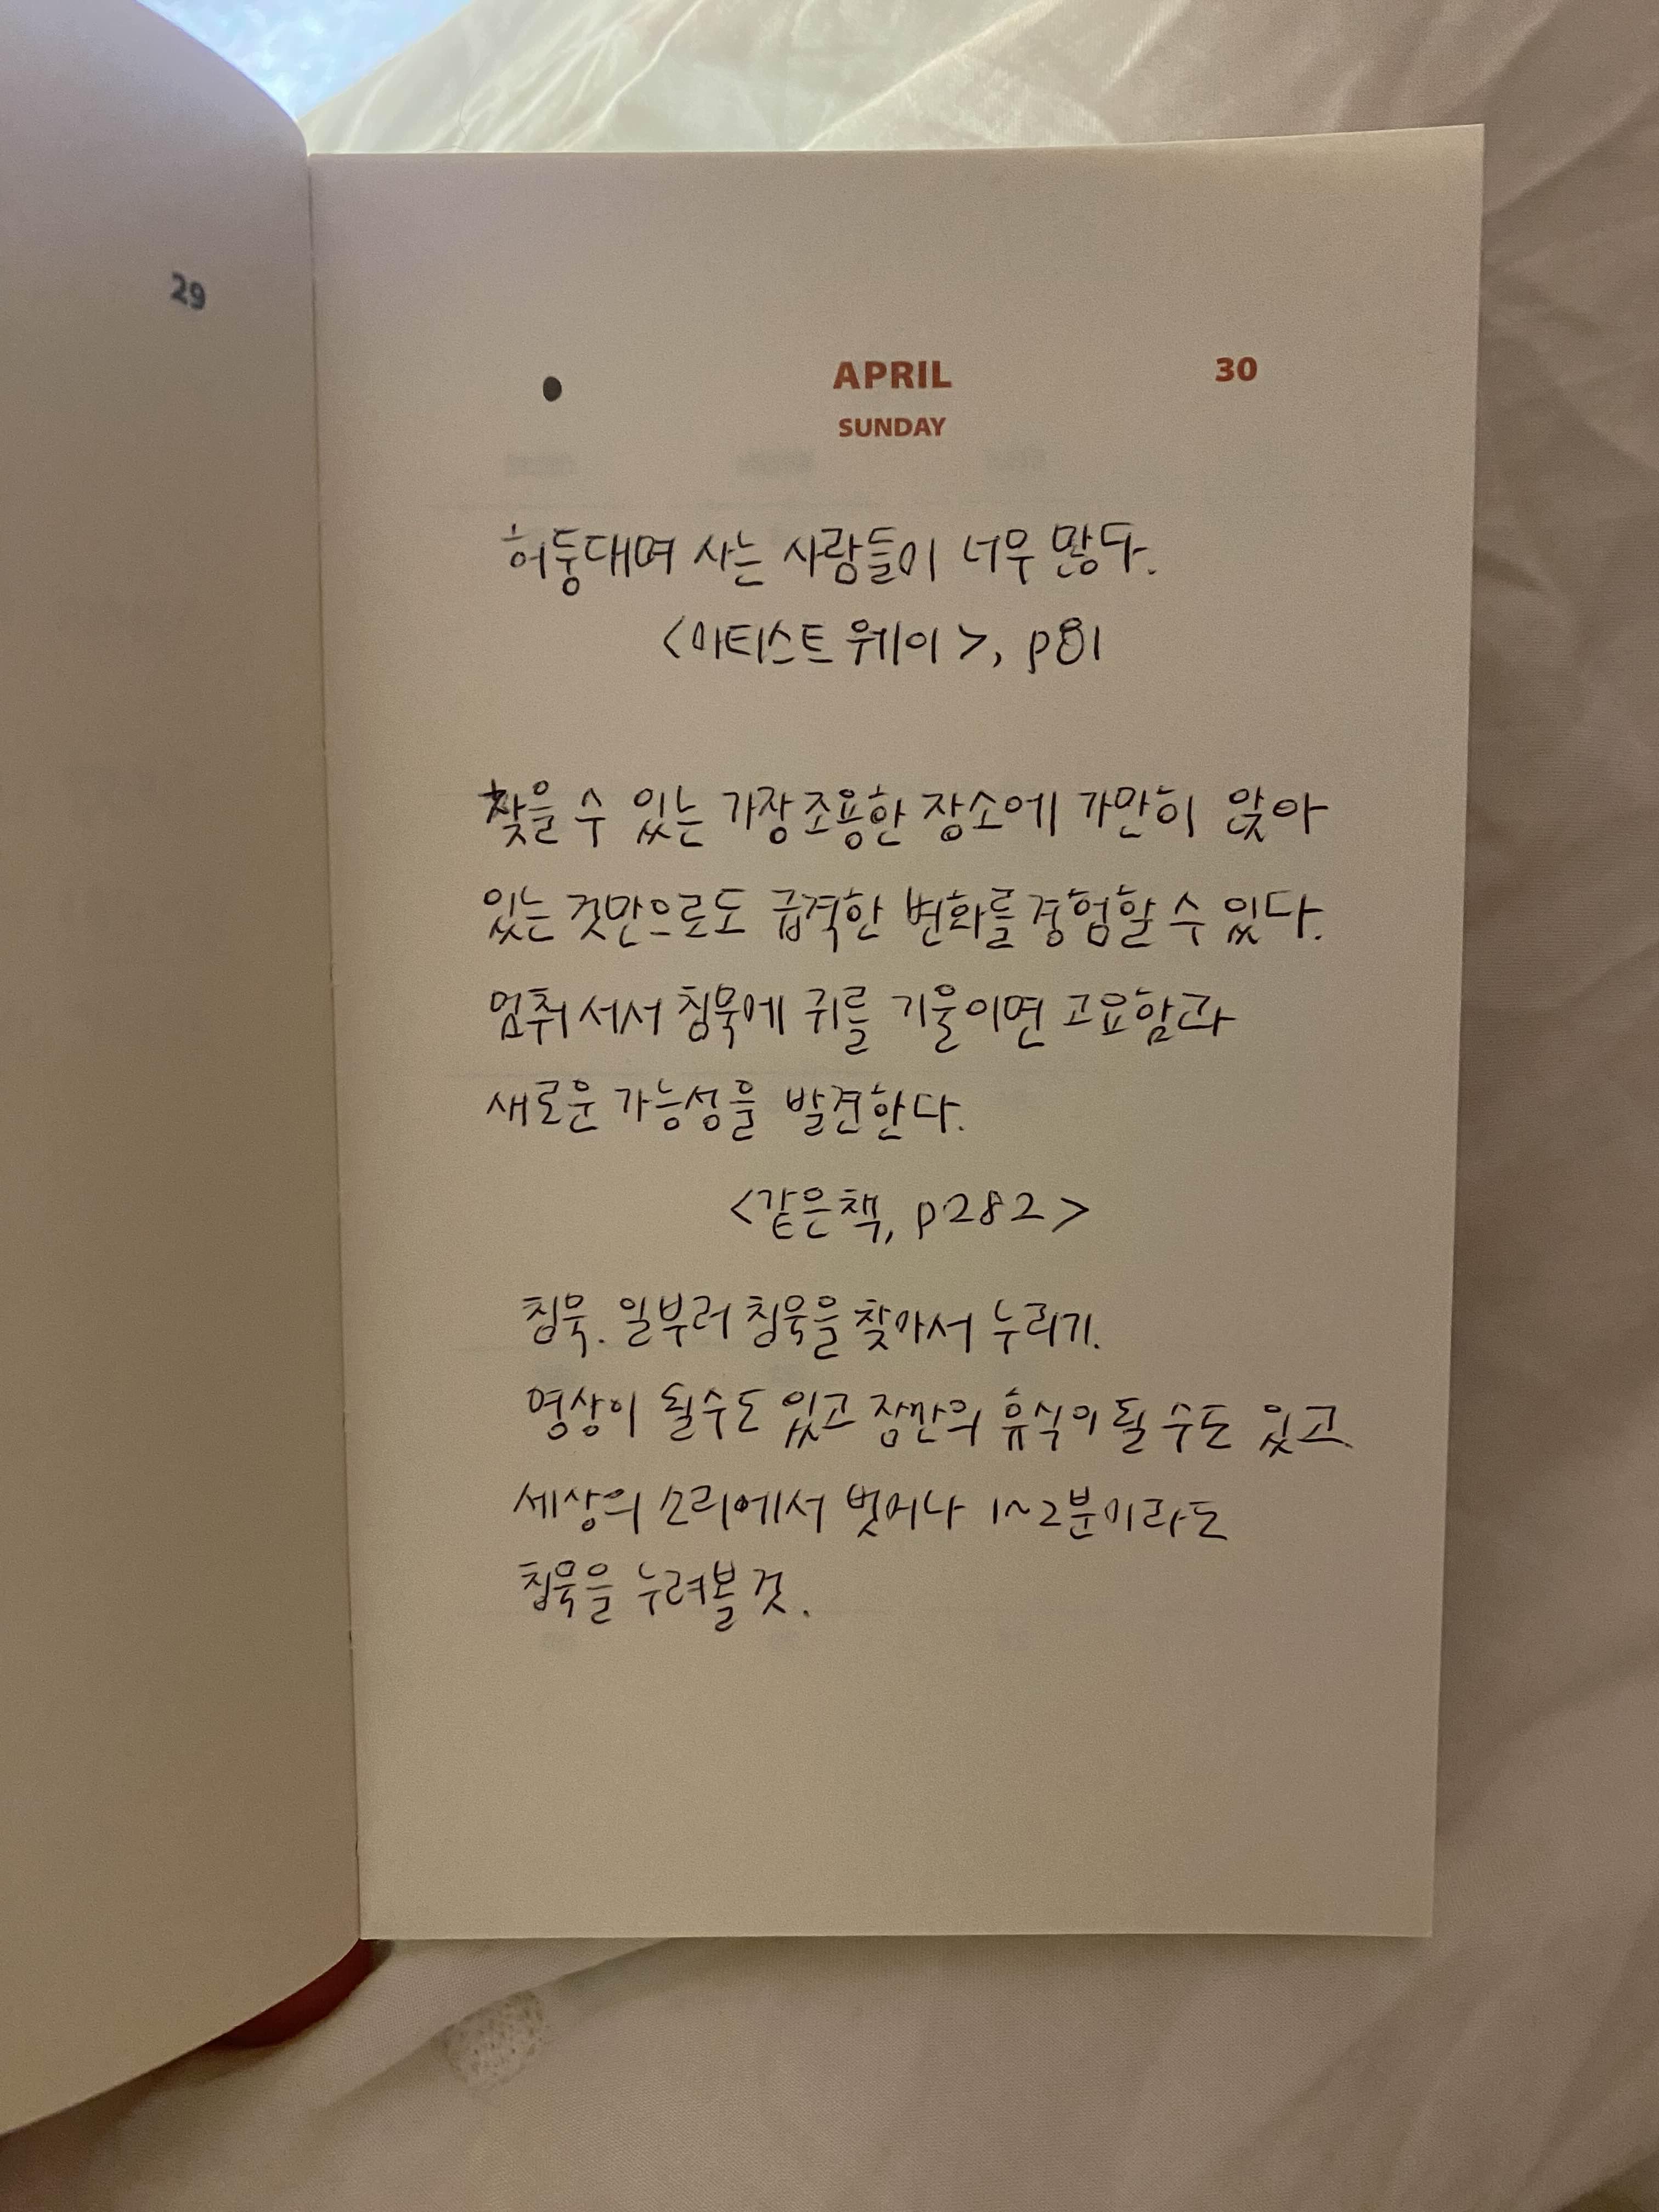 29
APRIL 30
SUNDAY
허둥대며 사는 사람들이 너무 많다.
<아티스트 웨이>, p81
찾을 수 있는 가장 조용한 장소에 가만히 앉아
있는 것만으로도 급격한 변화를 경험할 수 있다.
멈춰 서서 침묵에 귀를 기울이면 고요함과
새로운 가능성을 발견한다.
<같은책, p282>
침묵. 일부러 침묵을 찾아서 누리기.
명상이 될수도 있고 잠깐의 휴식이 될 수도 있고
세상의 소리에서 벗어나 1~2분이라도
침묵을 누려볼 것.